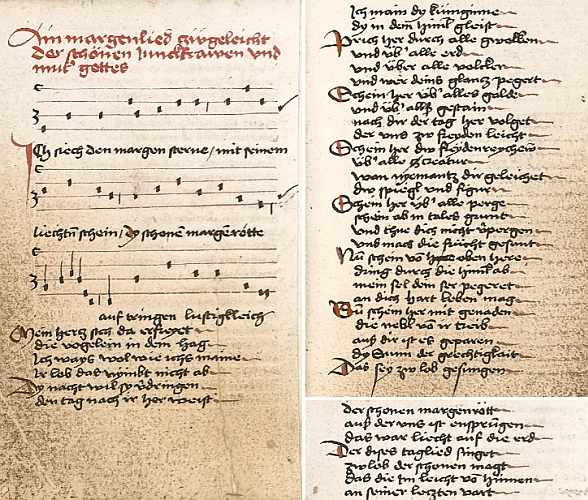 Ain margenlied zw geleicht
der schönen Junckfrawen vnd
mut' gottes
Ich siech den margen sterne / mit seinem
liechtñ schein / Dy schonen margeñrötte
auf tringen lustigkleich
Mein hertz sich da erfreyet
die vogelein in dem hag
Ich ways wol wie ichs maine
ir lob das nÿmbt nicht ab
Dy nacht wil sy v'dringen
den tag nach ir her weist
Ich main dy künigïnne
dy in dem himl gleist
Prich her durch alle gwolken
vnd vb' alle erd
vnd vber alle volcken
vnd wer deins glantz pegert
Schein her vb' alles golde
vnd vb' alls gestain
nach dir der tag her volget
der vns zw freyden leicht
Schein her dw freydenreychew
vb' alle Creatur
wan nyemantz dir geleichet
dw spiegl vnd figur
Schein her vb' alle perge
schein ab in tales grunt
vnd thue dich nicht v'pergen
vnd mach die frücht gesunt
Nu schein von oben here
dring durch die himl ab
mein sel dein ser pegeret
an dich hart leben mag
Nu schein her mit genaden
die nebl vañ ir treib
aus dir ist es geparen
dy Sunn der grechtigkait
Das sey zw lob gesungen
der schonen margenrött
aus der vns ist ensprungen
das war liecht auf die erd
Der dises taglied singet
zw lob der schonen magt
das die Im leicht von hinnen
an seiner letzten vart